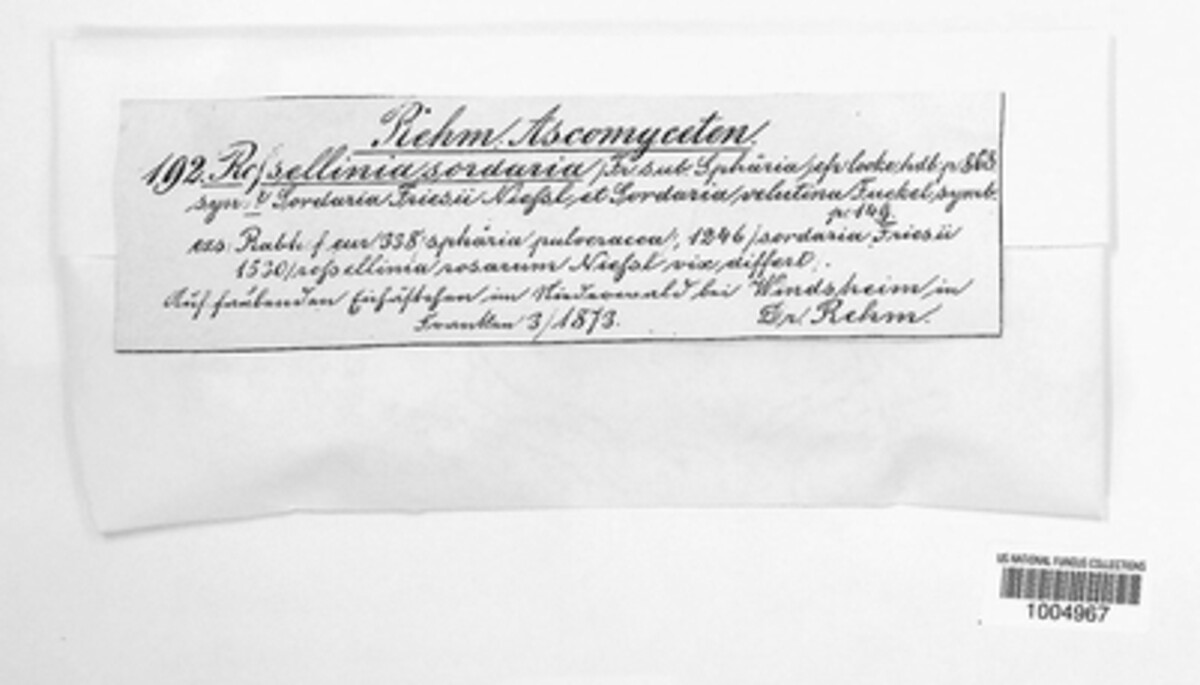 Rehm. Ascomyceten.
192. Roſsellinia sordaria (Fr. sub. Sphäria) cfr Cooke, hdb. p. 863
syn: Sordaria Friesii Nieſsl, et Sordaria velutina Fuckel, symb.
p. 149.
exs: Rabh. f. eur 338 sphäria pulveracea; 1246 / sordaria Friesii
1530 / roſsellinia rosarum Nieſsl vix differt,.
Auf faulenden Eichästchen im Niederwald bei Windsheim in
Franken 3/1873. Dr. Rehm.
US NATIONAL FUNGUS COLLECTIONS
1004967